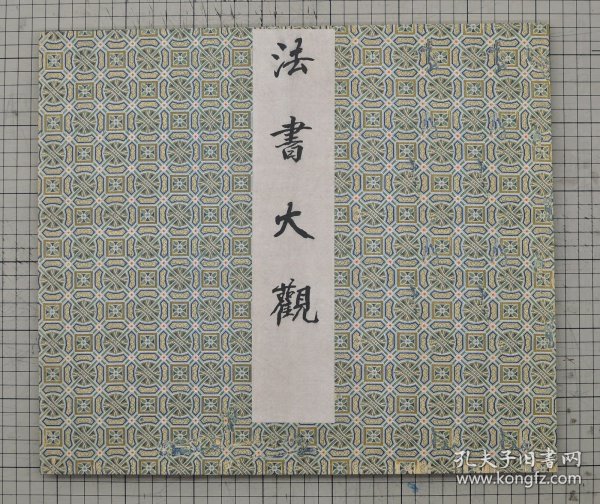 法書大觀
孔夫子旧书网
www.kongfz.com